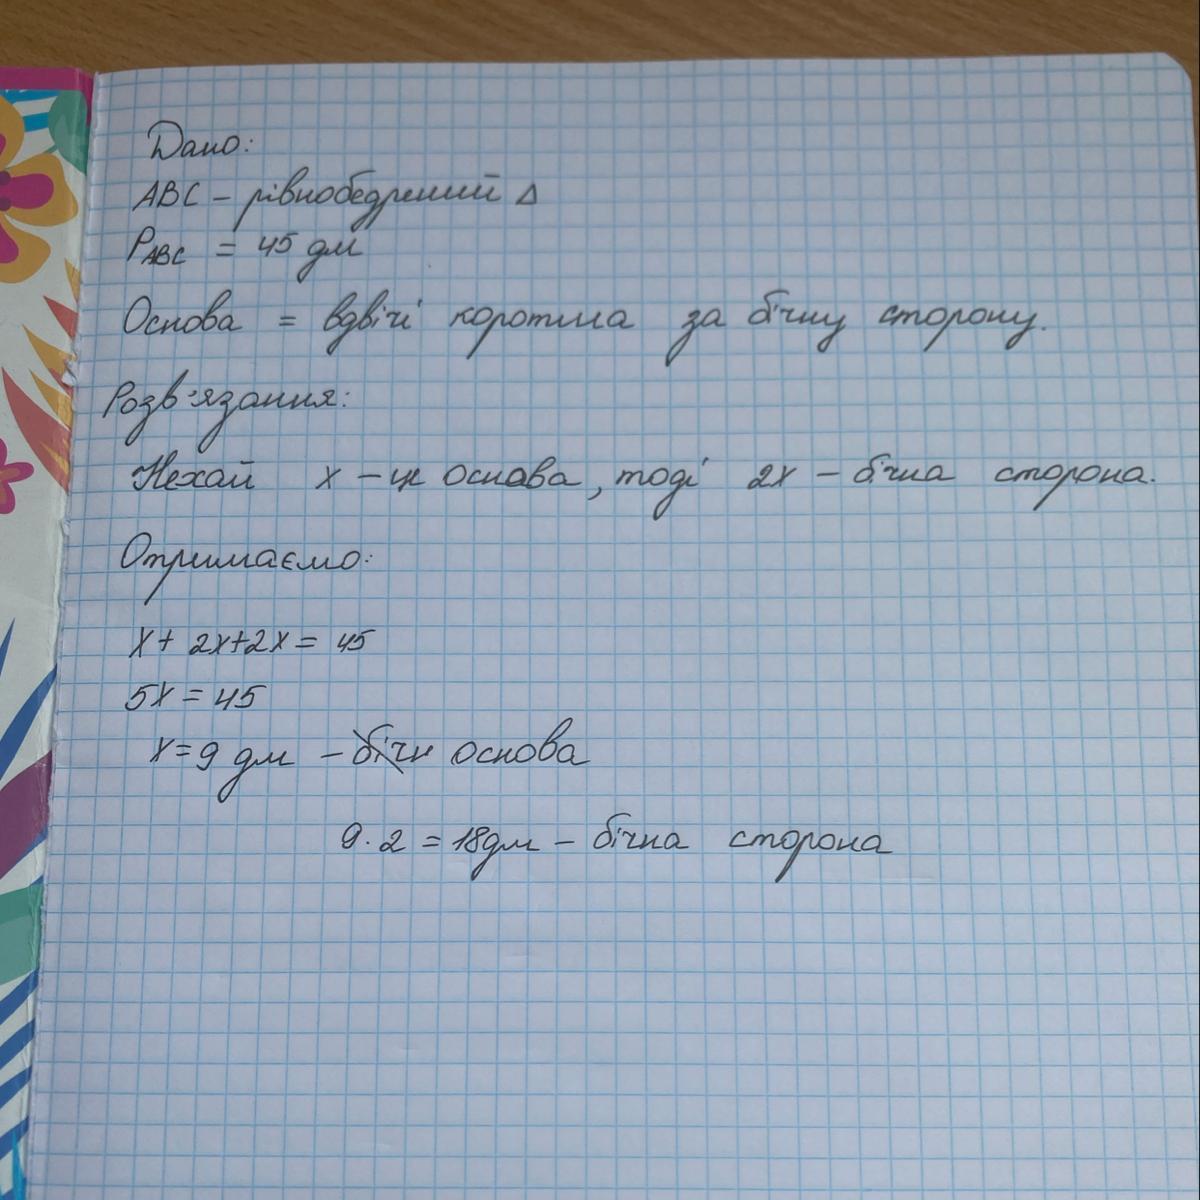 Дано:
ABC – рівнобедрений Δ
PABC = 45 дм
Основа = вдвічі коротша за бічну сторону.
Розв'язання:
Нехай x – це основа, тоді 2x – бічна сторона.
Отримаємо:
x + 2x+2x = 45
5x = 45
x = 9 дм – бічн основа
9 · 2 = 18дм – бічна сторона